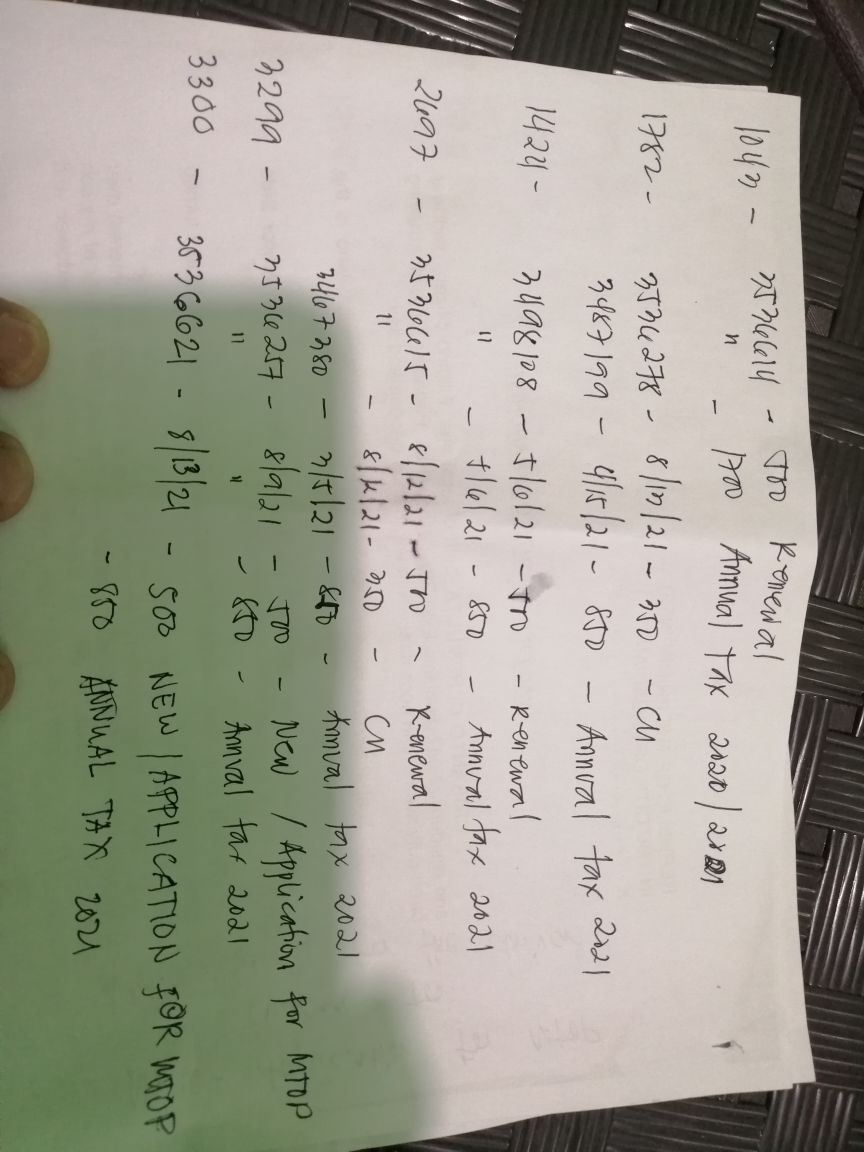 1043 - 3536614 - 500 Renewal
" - 1700 Annual Tax 2020/2021
1782 - 3536278 - 8/13/21 - 350 - CU
3487199 - 4/15/21 - 850 - Annual tax 2021
1424 - 3498108 - 5/6/21 - 500 - Renewal
" - 5/6/21 - 850 - Annual tax 2021
2697 - 3536615 - 8/12/21 - 500 - Renewal
" - 8/12/21 - 350 - CU
3467380 - 3/5/21 - 850 - Annual tax 2021
3299 - 3536257 - 8/9/21 - 500 - New / Application for MTOP
" " - 850 - Annual tax 2021
3300 - 3536621 - 8/13/21 - 500 NEW / APPLICATION FOR MTOP
- 850 ANNUAL TAX 2021